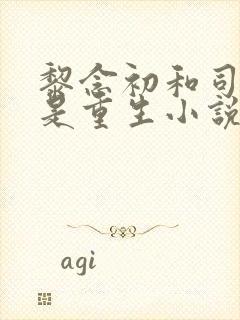 黎念初和司
是重生小说
agi